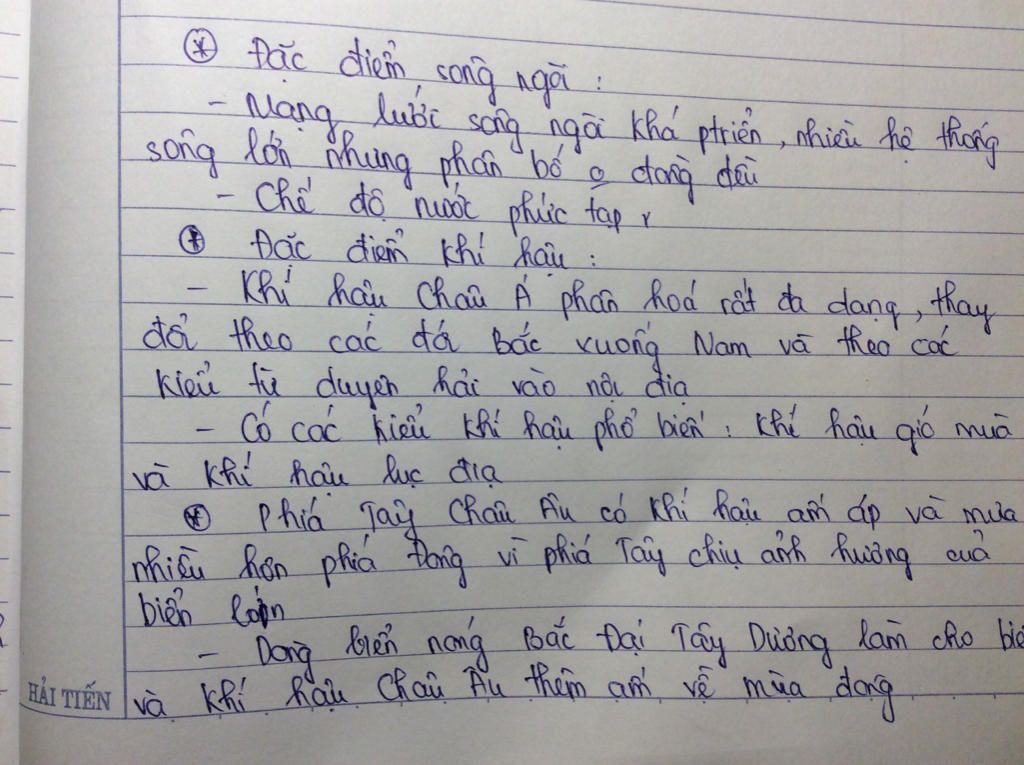 ⊛ Đặc điểm sông ngòi :
- Mạng lưới sông ngòi khá ptriển, nhiều hệ thống
sông lớn nhưng phân bố o đồng đều
- Chế độ nước phức tạp
⊛ Đặc điểm khí hậu :
- Khí hậu Châu Á phân hoá rất đa dạng, thay
đổi theo các đới Bắc xuống Nam và theo các
kiểu từ duyên hải vào nội địa
- Có các kiểu khí hậu phổ biến : khí hậu gió mùa
và khí hậu lục địa
⊛ Phía Tây Châu Âu có khí hậu ấm áp và mưa
nhiều hơn phía Đông vì phía Tây chịu ảnh hưởng của
biển lớn
- Dòng biển nóng Bắc Đại Tây Dương làm cho
và khí hậu Châu Âu thêm ấm về mùa đông
HẢI TIẾN